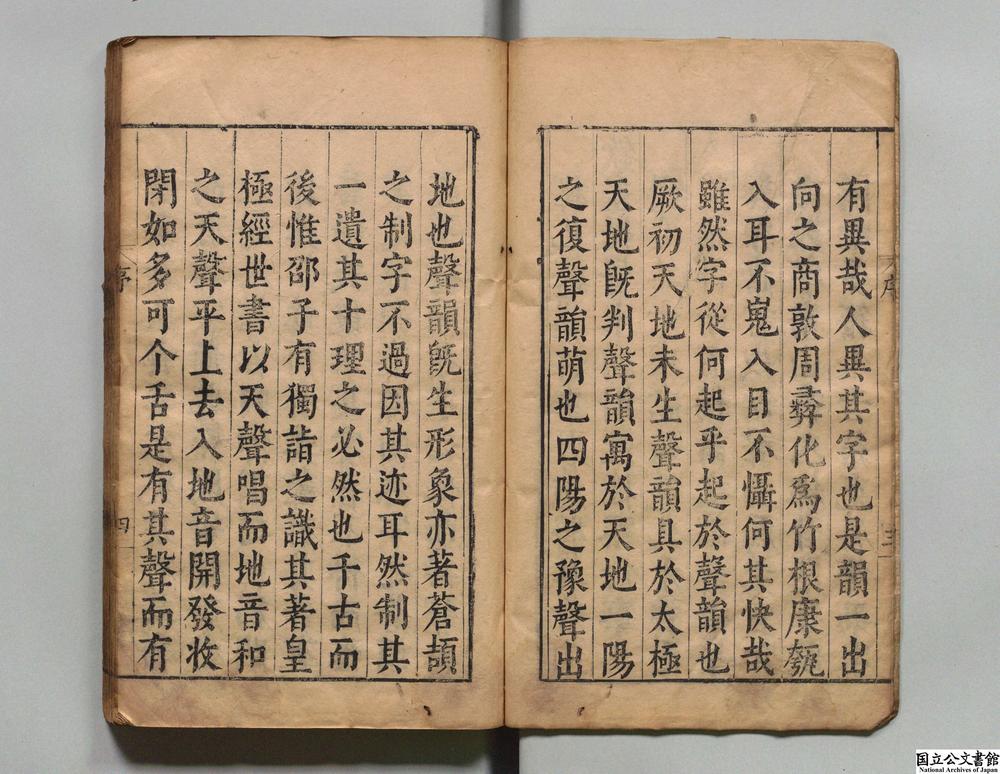 有異哉人異其字也是韻一出
向之商敦周彝化為竹根康瓠
入耳不嵬入目不懾何其快哉
雖然字從何起乎起於聲韻也
厥初天地未生聲韻具於太極
天地旣判聲韻寓於天地一陽
之復聲韻萌也四陽之豫聲出
序
三
地也聲韻旣生形象亦著蒼頡
之制字不過因其迹耳然制其
一遺其十理之必然也千古而
後惟邵子有獨詣之識其著皇
極經世書以天聲唱而地音和
之天聲平上去入地音開發收
閉如多可个舌是有其聲而有
序
四
国立公文書館
National Archives of Japan